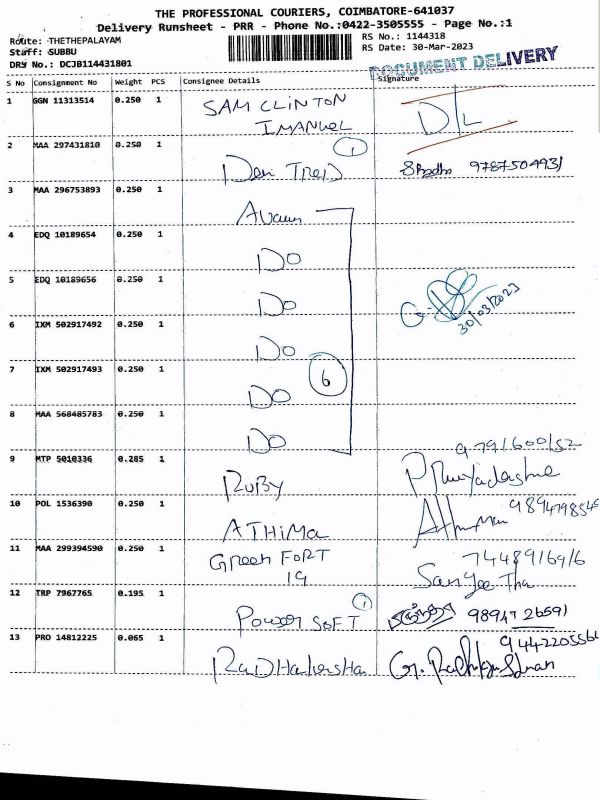 THE PROFESSIONAL COURIERS, COIMBATORE-641037
Delivery Runsheet - PRR - Phone No.:0422-3505555 - Page No.:1
Route: THETHEPALAYAM
RS No.: 1144318
Staff: SUBBU
RS Date: 30-Mar-2023
DRS No.: DCJB114431801
DOCUMENT DELIVERY
S No Consignment No Weight PCS Consignee Details Signature
1 GGN 11313514 0.250 1 SAM CLINTON D/L
IMANUEL
2 MAA 297431810 0.250 1 1
9787504931
3 MAA 296753893 0.250 1
4 EDQ 10189654 0.250 1 DO
5 EDQ 10189656 0.250 1 DO
30/03/2023
6 IXM 502917492 0.250 1 DO
7 IXM 502917493 0.250 1 DO 6
8 MAA 568485783 0.250 1 DO
9791600152
9 MTP 5010336 0.285 1 RUBY
10 POL 1536390 0.250 1 ATHIMA
11 MAA 299394590 0.250 1 Green FORT 7448916916
19
12 TRP 7967765 0.195 1 1
POWER SOFT
13 PRO 14812225 0.065 1